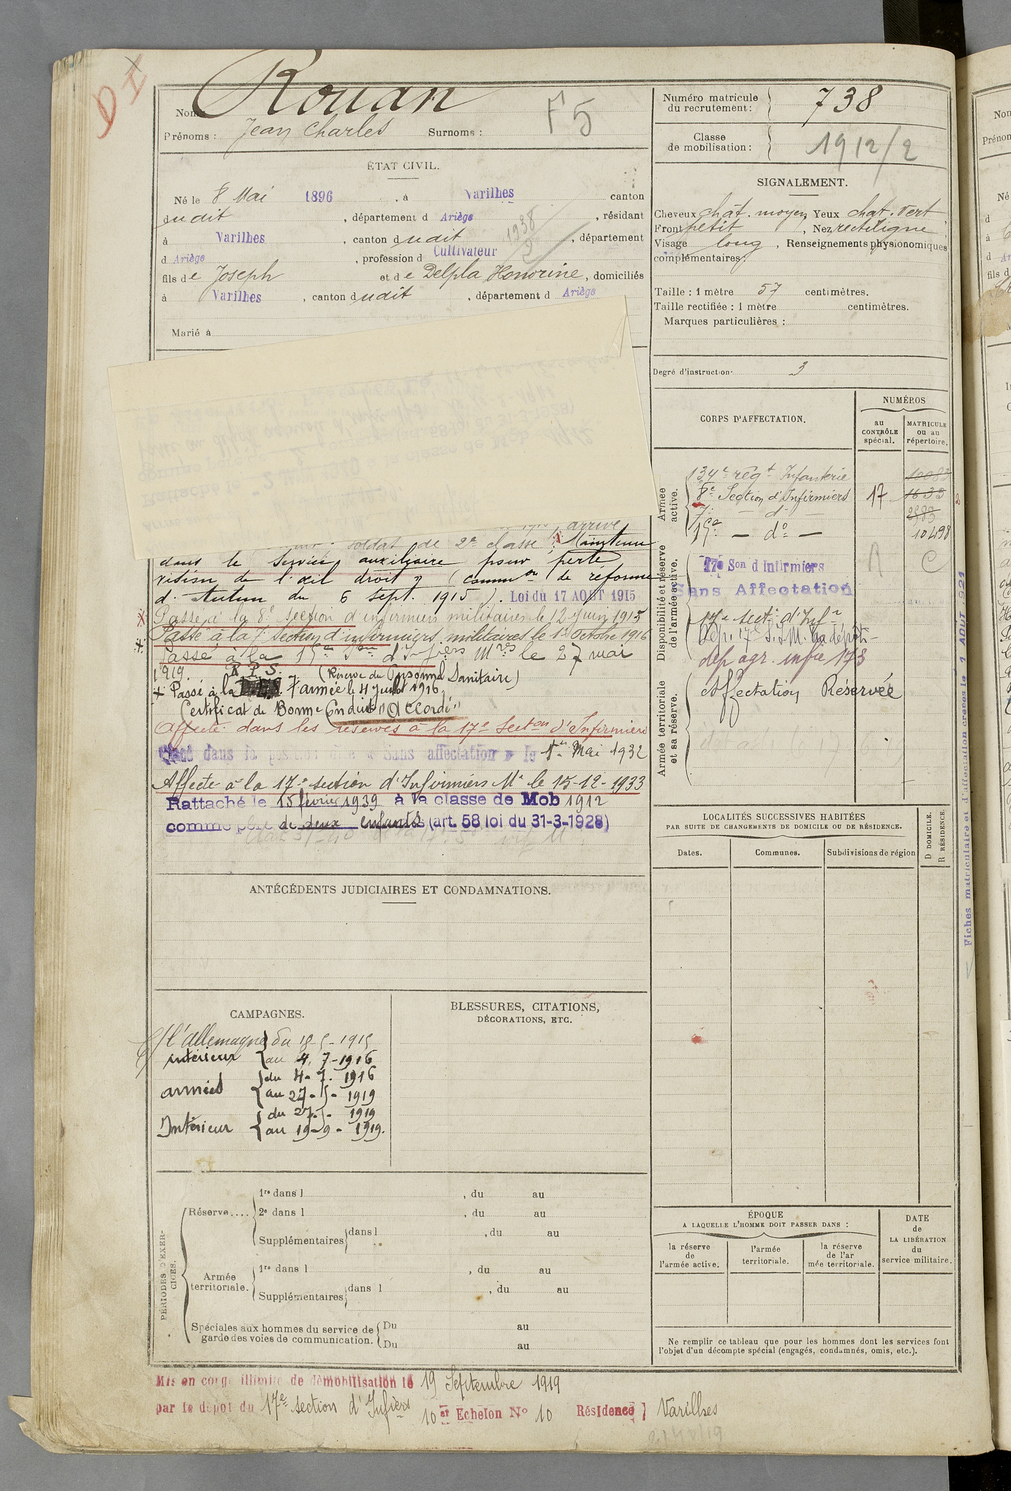 Nom Rouan
Prénoms : Jean Charles Surnoms :
F5
ÉTAT CIVIL.
Né le 8 Mai 1896, à Varilhes canton
dudit, département d Ariège, résidant
à Varilhes, canton dudit, département
d Ariège, profession d Cultivateur
1938
2
fils de Joseph et de Delpla Honorine, domiciliés
à Varilhes, canton dudit, département d Ariège
Marié à
arrivé
soldat de 2e classe. Maintenu
dans le service auxiliaire pour perte
vision de l'œil droit (Common de reforme
d'Autun du 6 sept. 1915). Loi du 17 AOUT 1915
Passé à la 8e section d'infirmiers militaires le 12 juin 1915
Passé à la 7 section d'infirmiers militaires le 1er Octobre 1916
Passé à la 15e Son d'Infiers Mres le 27 mai
1919. R.P.S. (Réserve du Personnel Sanitaire)
+ Passé à la 7 armée le 4 Juillet 1916
Certificat de Bonne Conduite "Accordé"
Affecté dans les réserves à la 17e Secton d'Infirmiers
Classé dans la position « Sans affectation » le 1er Mai 1932
Affecté à la 17e section d'Infirmiers Mre le 15-12-1933
Rattaché le 15 février 1939 à la classe de Mob 1912
comme père de deux enfants (art. 58 loi du 31-3-1928)
ANTÉCÉDENTS JUDICIAIRES ET CONDAMNATIONS.
CAMPAGNES.
C/ l'Allemagne du 18-5-1915
intérieur au 4-7-1916
armées du 4-7-1916
au 27-5-1919
Intérieur du 27-5-1919
au 19-9-1919.
BLESSURES, CITATIONS,
DÉCORATIONS, ETC.
PÉRIODES D'EXERCICES.
Réserve.... 1re dans l , du au
2e dans l , du au
Supplémentaires dans l , du au
Armée territoriale. 1re dans l , du au
Supplémentaires dans l , du au
Spéciales aux hommes du service de garde des voies de communication. Du au
Du au
Mis en congé illimité de démobilisation le 19 Septembre 1919
par le dépôt du 17e section d'Infiers 10 er Echelon No 10 Résidence } Varilhes
Numéro matricule du recrutement : 738
Classe de mobilisation : 1912/2
SIGNALEMENT.
Cheveux chât. moyen, Yeux chat. vert
Front petit, Nez rectiligne
Visage long, Renseignements physionomiques
complémentaires :
Taille : 1 mètre 57 centimètres.
Taille rectifiée : 1 mètre centimètres.
Marques particulières :
Degré d'instruction : 3
CORPS D'AFFECTATION.
NUMÉROS
au CONTRÔLE spécial.
MATRICULE ou au répertoire.
Armée active.
134e régt Infanterie
8e Section d'Infirmiers 17
7e — do —
15e — do — 10498
Disponibilité et réserve de l'armée active.
17e Son d Infirmiers A C
Sans Affectation
17e secti. d'Infre
dép. agr. infie 173
Armée territoriale et sa réserve.
Affectation Réservée
LOCALITÉS SUCCESSIVES HABITÉES
PAR SUITE DE CHANGEMENTS DE DOMICILE OU DE RÉSIDENCE.
Dates. Communes. Subdivisions de région
D DOMICILE.
R RÉSIDENCE.
Fiches matriculaire et d'affectation créées le 1 AOUT 1921
ÉPOQUE
A LAQUELLE L'HOMME DOIT PASSER DANS :
la réserve de l'armée active.
l'armée territoriale.
la réserve de l'armée territoriale.
DATE de LA LIBÉRATION du service militaire.
Ne remplir ce tableau que pour les hommes dont les services font
l'objet d'un décompte spécial (engagés, condamnés, omis, etc.).